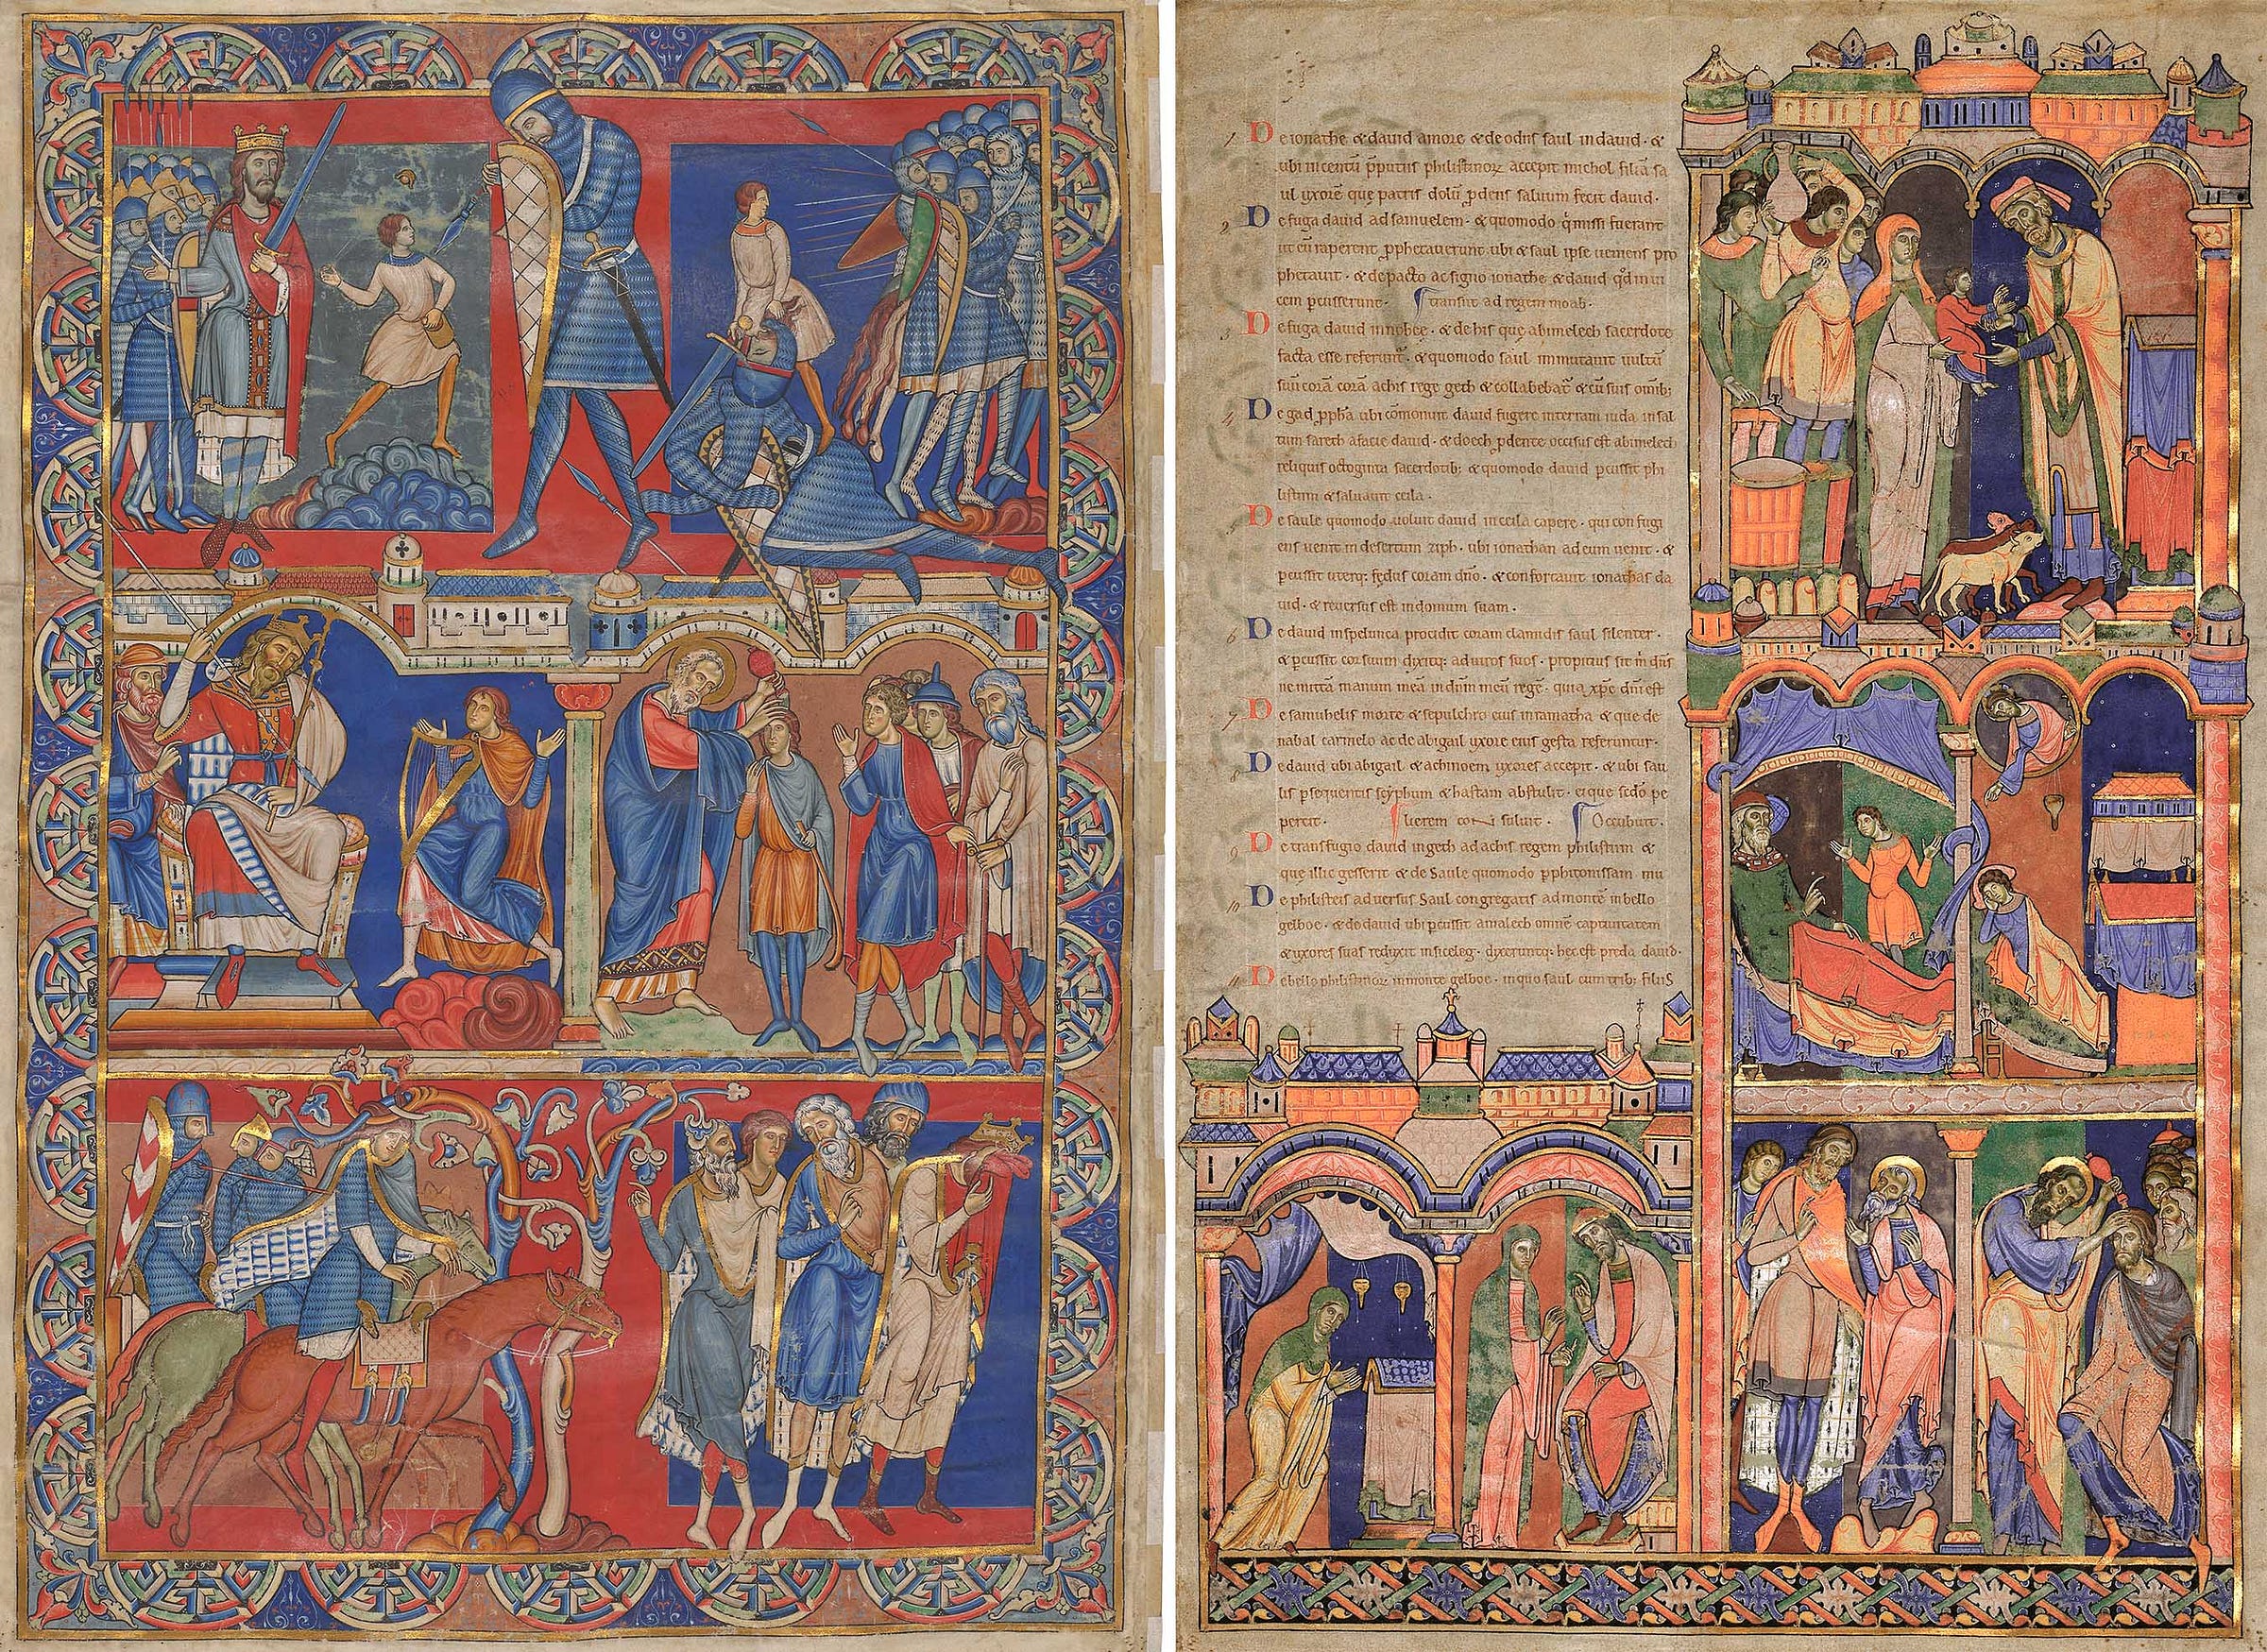 De ionathe & david amore & de odiis saul in david · &
ubi in centū p̄putiis philistinoꝝ accepit michol filiā sa
ul uxorē que patris dolū p̄dens saluum fecit david ·
2 De fuga david ad samuelem · & quomodo q̄ missi fuerant
ut eū raperent p̱phetaverunt · ubi & saul ipse veniens pro
phetavit · & de pacto ac signo ionathe & david qđ in vi
cem pcusserunt · transiit ad regem moab ·
3 De fuga david in nobee · & de his que abimelech sacerdote
facta esse referunt̄ · & quomodo saul immutavit vultū
suū corā corā achis rege geth & collabebat̄ & cū suis omib;
4 De gad p̱pħa ubi cōmonuit david fugere in terram iuda in sal
tum fareth a facie david · & doech p̱dente occisus est abimelech
reliquis octoginta sacerdotib; & quomodo david pcussit phi
listiim & salvavit ceila ·
De saule quomodo voluit david in ceila capere · qui con fugi
ens venit in desertum ziph · ubi ionathan ad eum venit · &
pcussit uterq; fędus coram dn̄o · & confortavit ionathas da
vid · & reversus est in domum suam ·
6 De david in spelunca procidit coram clamidis saul silenter ·
& pcussit cor suum dixitq; ad viros suos · propitius sit m̄ dn̄s
ne mittā manum meā in dn̄m meū regē · quia xp̄c dn̄i est
7 De samuhelis morte & sepulchro eius in ramatha & que de
nabal carmelo ac de abigail uxore eius gesta referuntur ·
De david ubi abigail & achinoem uxores accepit · & ubi sau
lis psequentis scyphum & hastam abstulit · eique sedo pe
percit · lierem suluit · Occubuit ·
9 De transfugio david in geth ad achis regem philistiim &
que illic gesserit & de Saule quomodo p phitonissam mu
10 De philisteis adversus Saul congregatis ad montē in bello
gelboe · & do david ubi pcussit amalech omnē captivitatem
& uxores suas reduxit in siceleg · dixeruntq; hec est preda david ·
11 De bello philistinoꝝ in monte gelboe · in quo saul cum trib; filiis